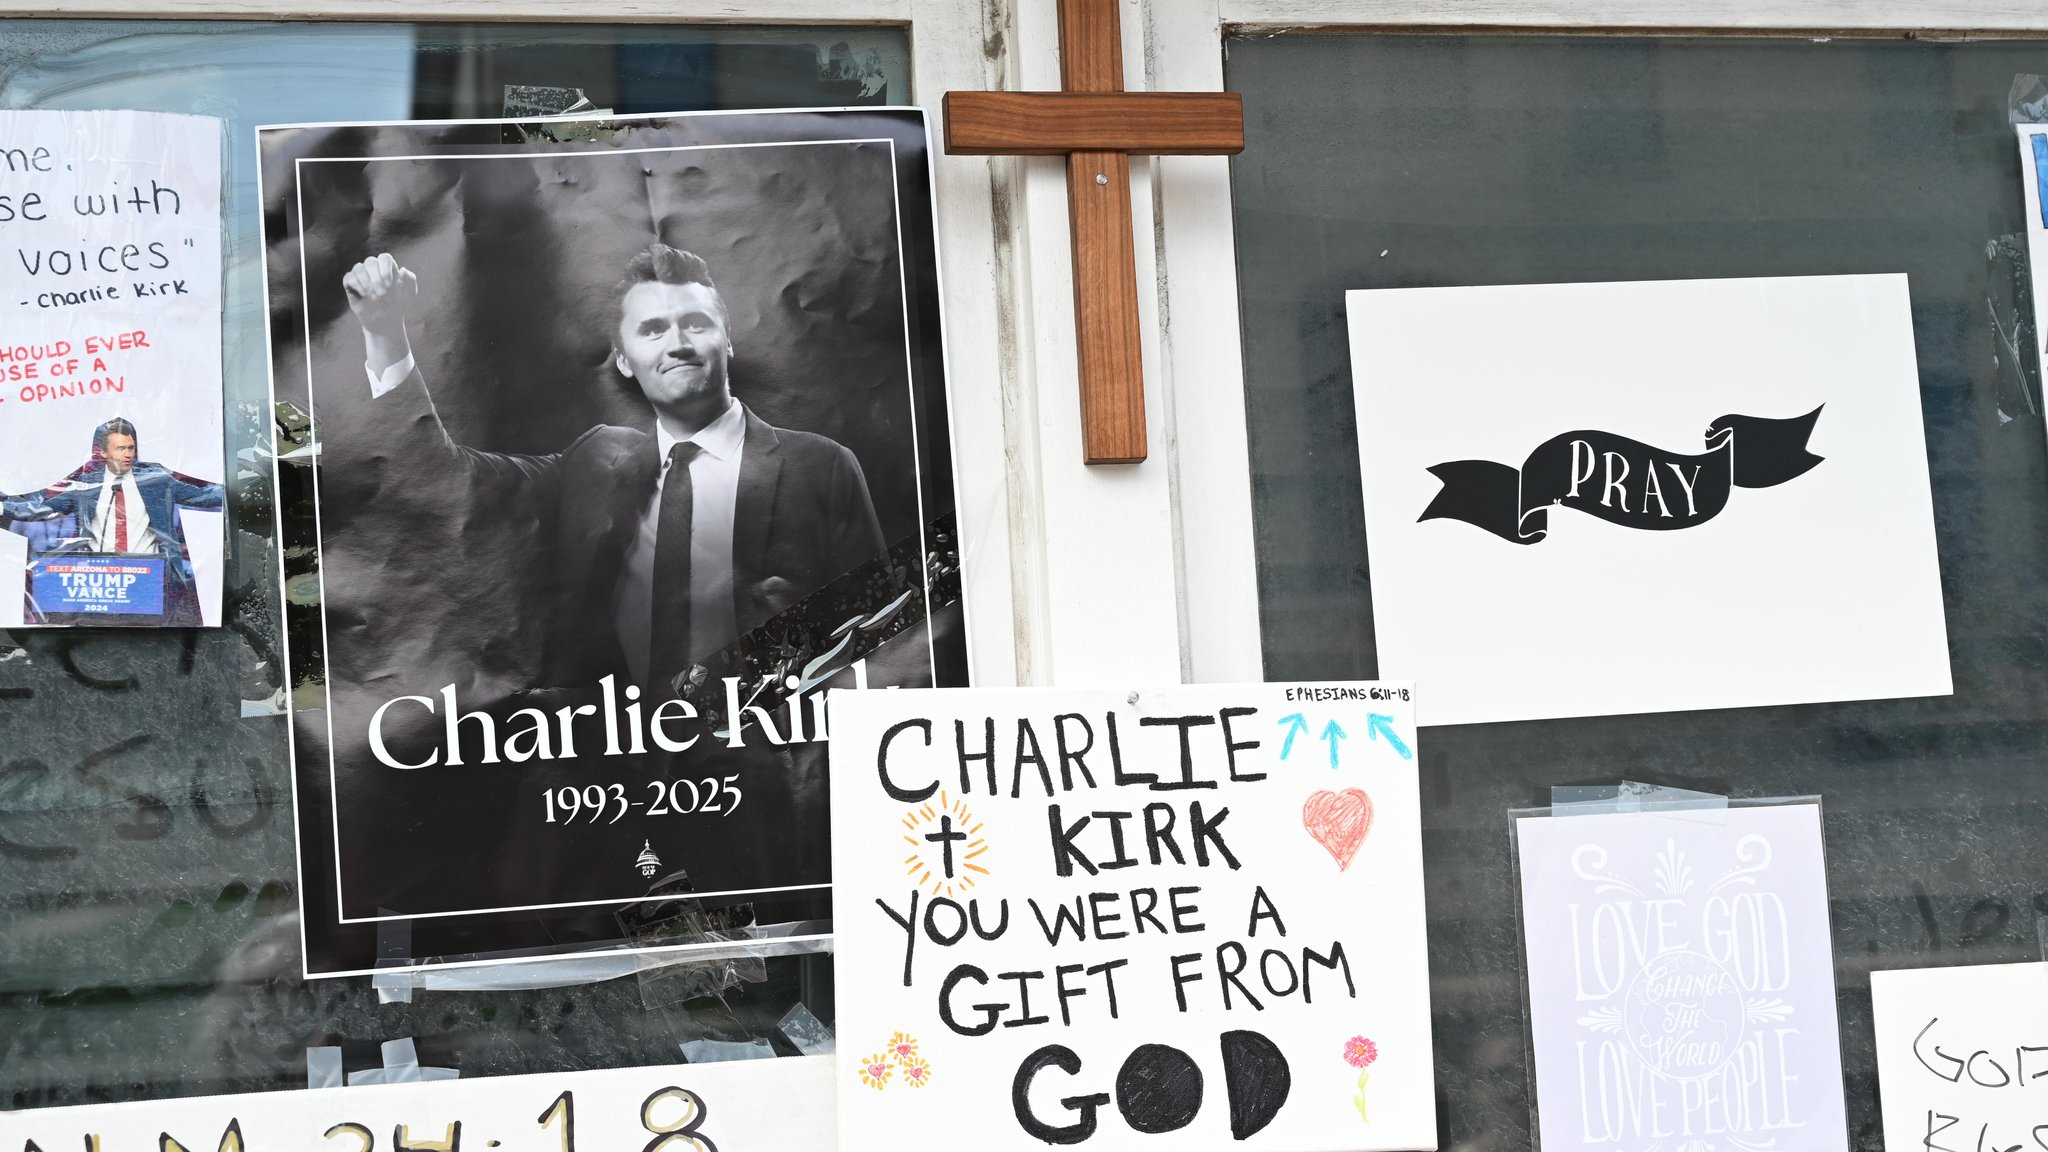 me.
se with
voices"
- Charlie Kirk
HOULD EVER
USE OF A
OPINION
TEXT ARIZONA TO 88022
TRUMP
VANCE
MAKE AMERICA GREAT AGAIN!
2024
Charlie Kirk
1993-2025
GOP
PRAY
EPHESIANS 6:11-18
CHARLIE
KIRK
YOU WERE A
GIFT FROM
GOD
LOVE GOD
CHANGE
THE
WORLD
LOVE PEOPLE
24:18
GOD